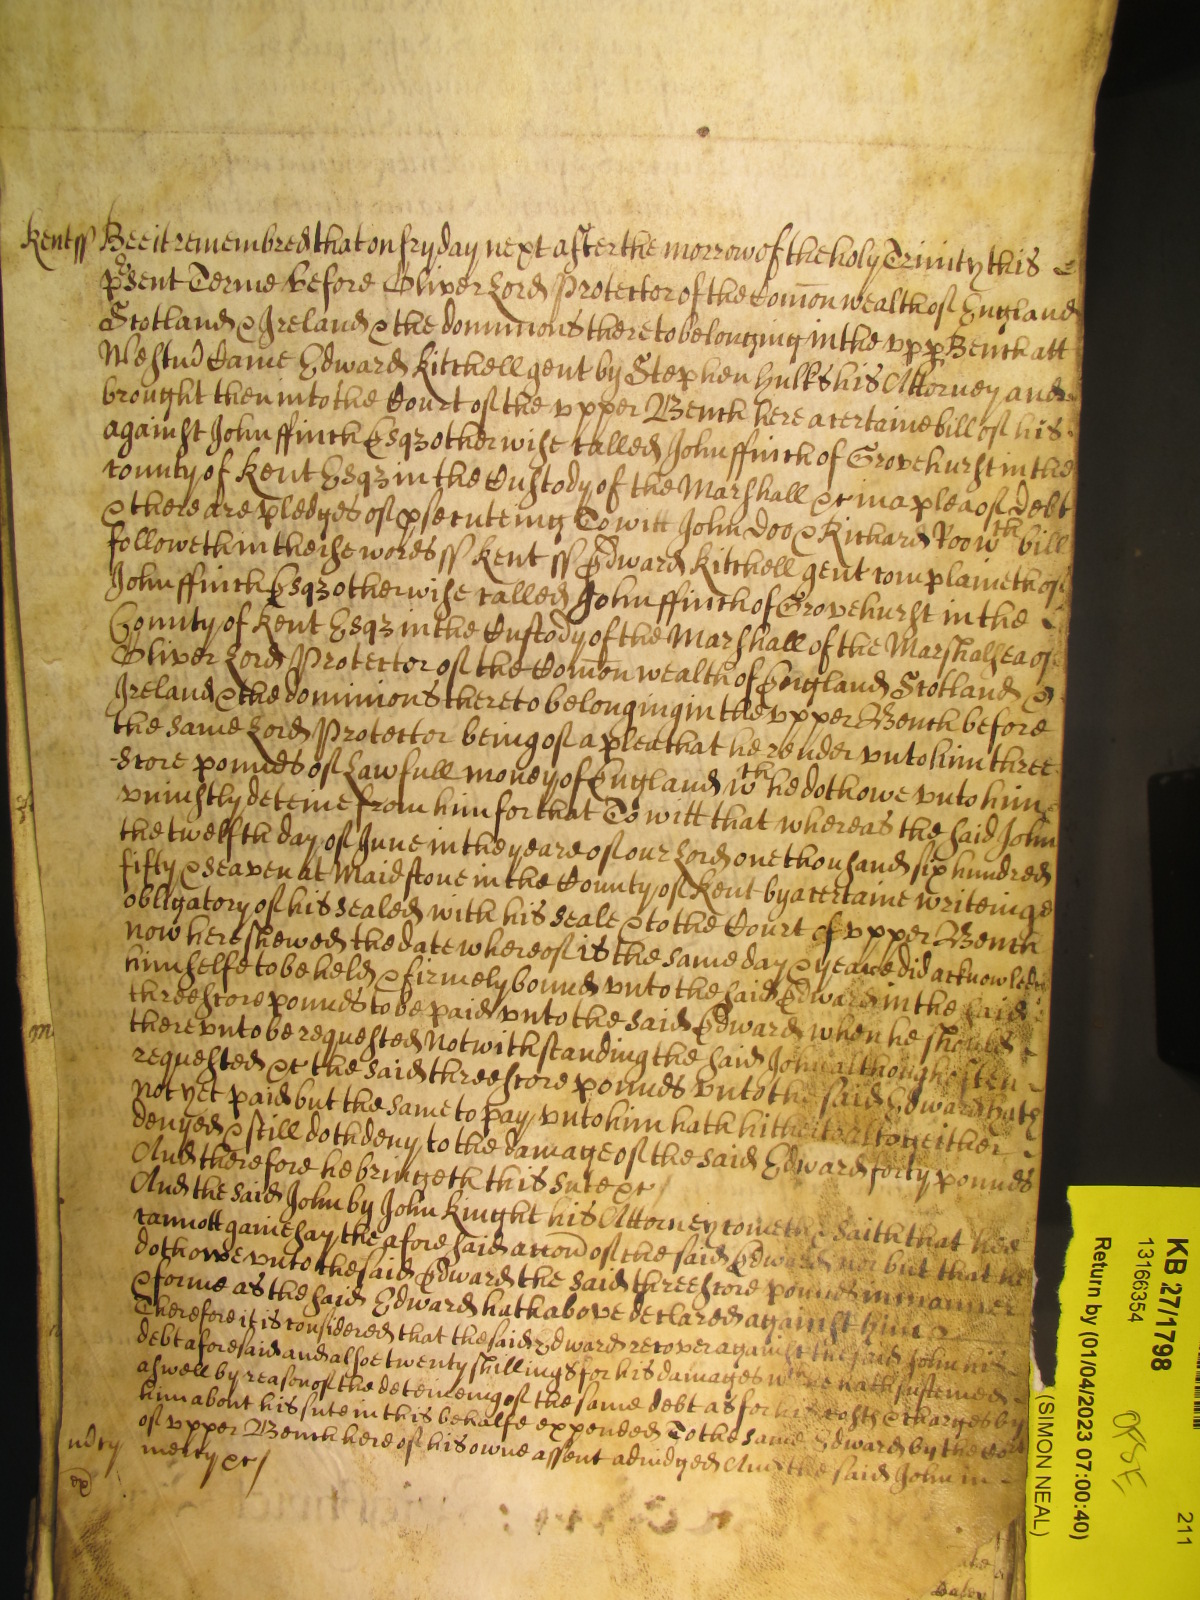 Kent ss Bee it remembred that on fryday next after the morrow of the holy Trinity this
psent Terme before Oliver Lord Protector of the Comōn wealth of England
Scotland & Ireland & the dominions thereto belonging in the upp Bench att
Westm̄ Came Edward Kitchell gent by Stephen Hulks his Attorney and
brought then into the Court of the upper Bench here a certaine bill of his
against John ffinch Esqз otherwise called John ffinch of Grovehurst in the
county of Kent Esqз in the Custody of the Marshall &c in a plea of Debt
& there are pledges of psecuteing To witt John Doo & Richard Roo wch bill
followeth in theise words ss Kent ss Edward Kitchell gent complaineth of
John ffinch Esqз otherwise called John ffinch of Grovehurst in the
County of Kent Esqз in the Custody of the Marshall of the Marshalsea of
Oliver Lord Protector of the Comōn wealth of England Scotland &
Ireland & the dominions thereto belonging in the upper Bench before
the same Lord Protector being of a plea that he render unto him three
score pounds of Lawfull money of England wch he doth owe unto him
uniustly deteine from him for that To witt that whereas the said John
the twelfth day of June in the yeare of our Lord one thousand six hundred
fifty & seaven at Maidstone in the County of Kent by a certaine writeinge
obligatory of his sealed with his seale & to the Court of upper Bench
now here shewed the date whereof is the same day & yeare did acknowledg
himselfe to be held & firmely bound unto the said Edward in the said
threescore pounds to be paid unto the said Edward when he should
thereunto be requested Notwithstanding the said John although often
requested &c the said threescore pounds unto the said Edward hath
not yet paid but the same to pay unto him hath hitherto altogeither
denyed & still doth deny to the damage of the said Edward forty pounds
And therefore he bringeth this sute &c
And the said John by John Knight his Attorney cometh & saith that hee
cannott gainesay the aforesaid accōn of the said Edward nor but that he
doth owe unto the said Edward the said threescore pounds in manner
& forme as the said Edward hath above declared against him &
Therefore it is considered that the said Edward recover against the said John his
debt aforesaid and alsoe twenty shillings for his damages wch he hath susteined
aswell by reason of the deteineing of the same debt as for his costs & charges by
him about his sute in this behalfe expended To the same Edward by the Cort
of upper Bench here of his owne assent adiudged And the said John in
mercy &c
KB 27/1798
13166354
Return by (01/04/2023 07:00:40)
(SIMON NEAL)
211